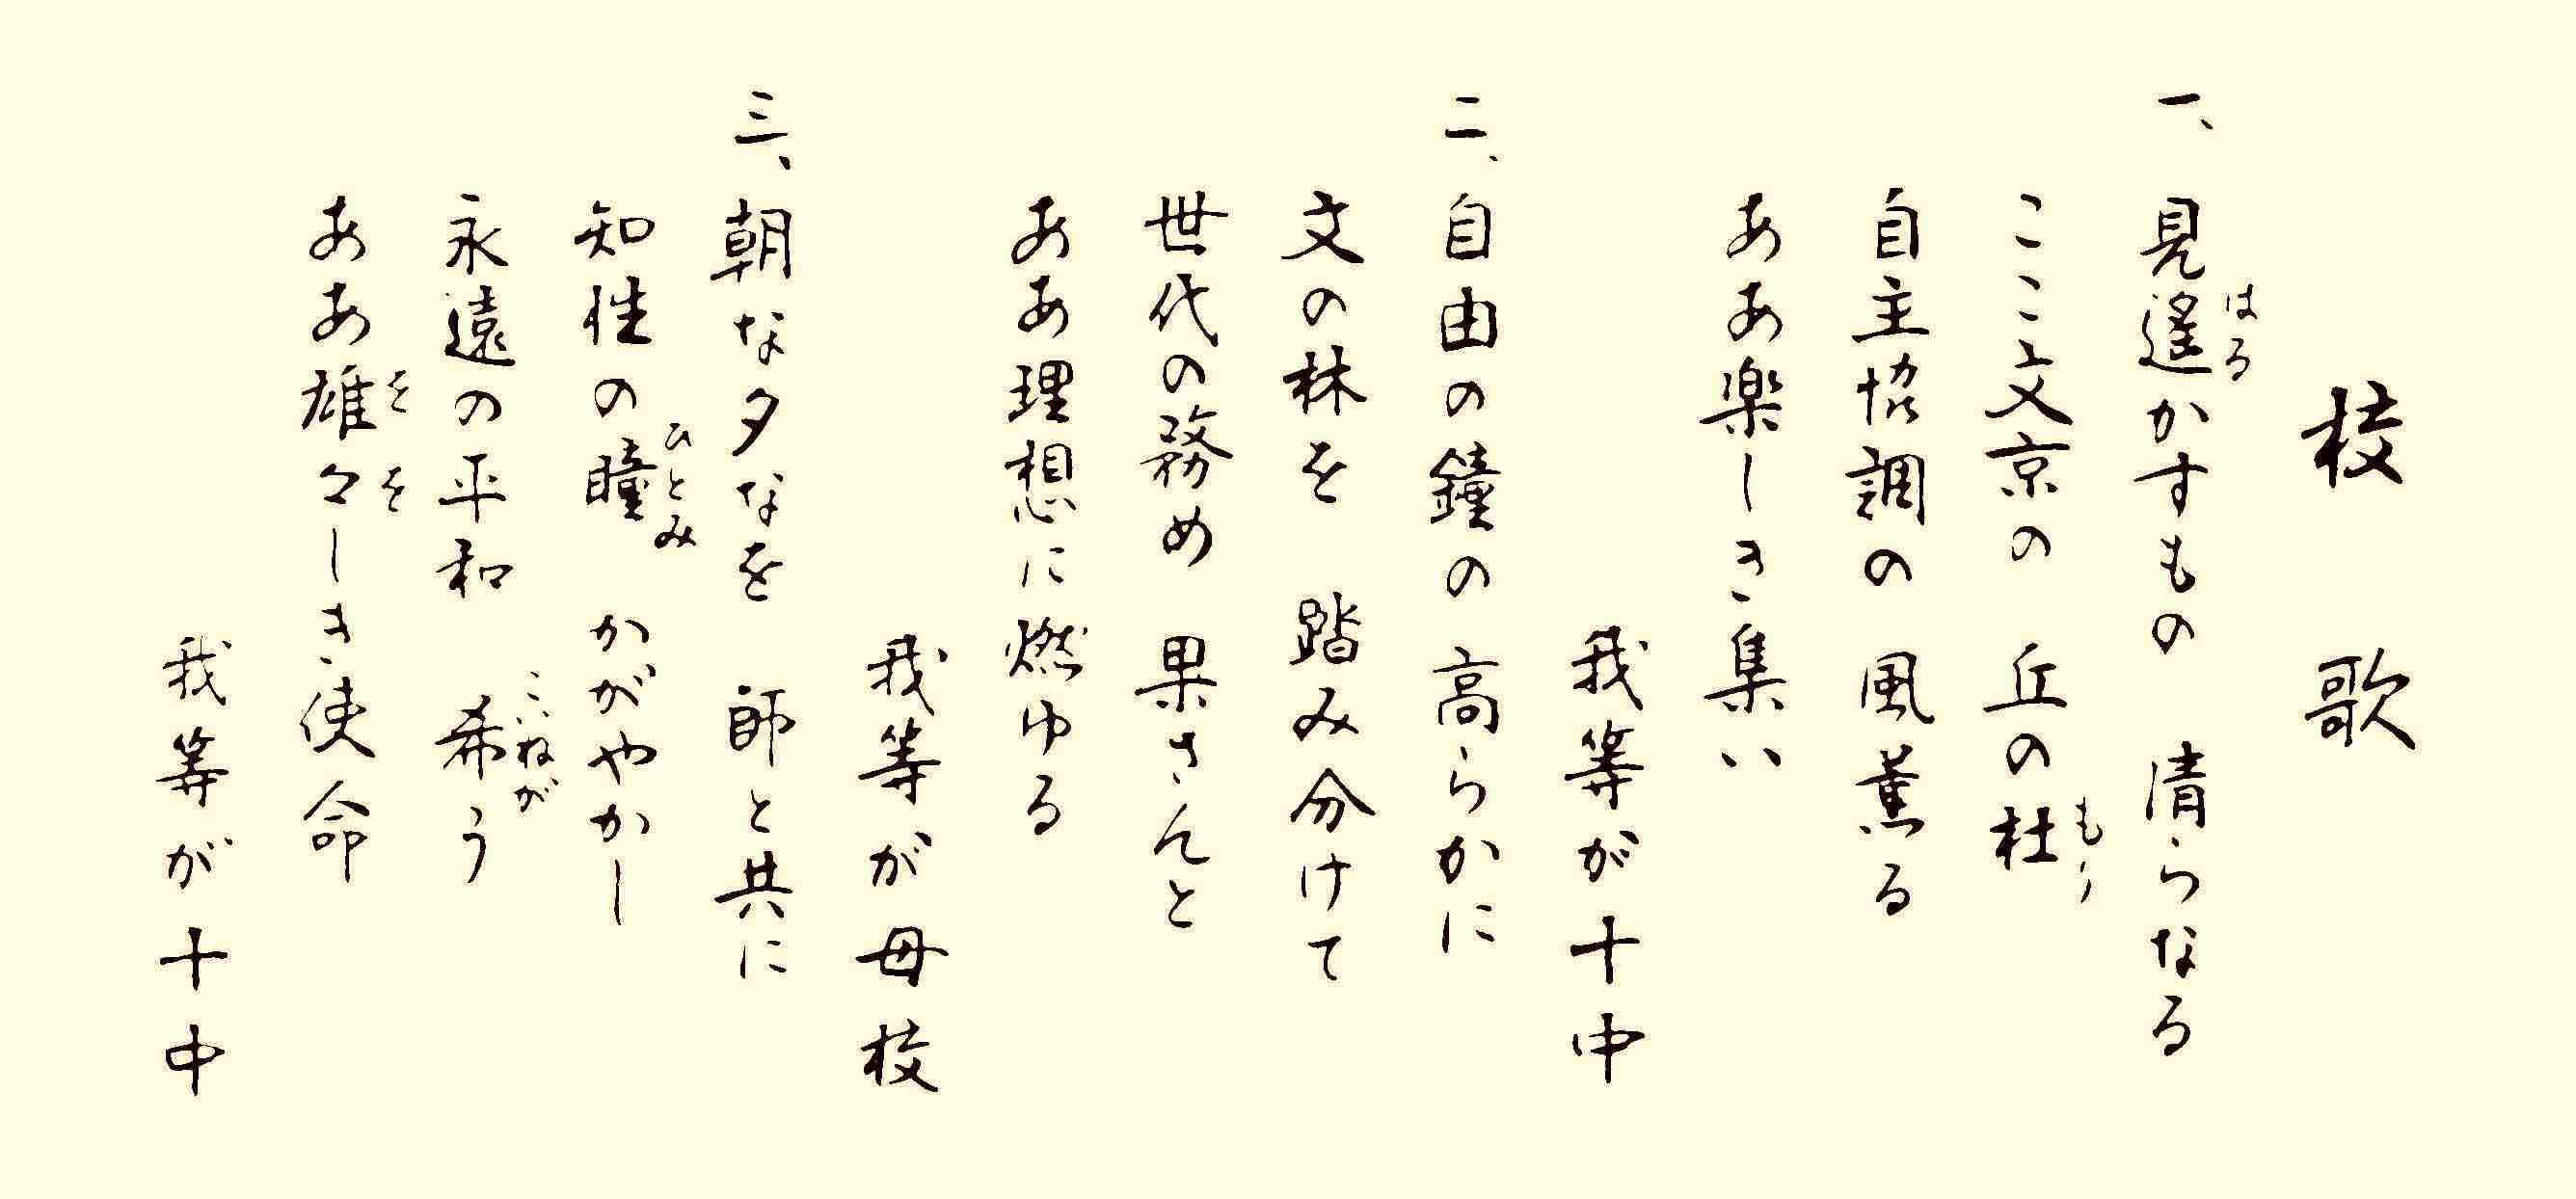 校歌
一、見遙かすもの 清らなる
はる
ここ文京の 丘の杜
もり
自主協調の 風薫る
ああ楽しき集い
我等が十中
二、自由の鐘の 高らかに
文の林を 踏み分けて
世代の務め 果さんと
ああ理想に燃ゆる
我等が母校
三、朝な夕なを 師と共に
知性の瞳 かがやかし
ひとみ
永遠の平和 希う
こいねが
ああ雄々しき使命
をを
我等が十中